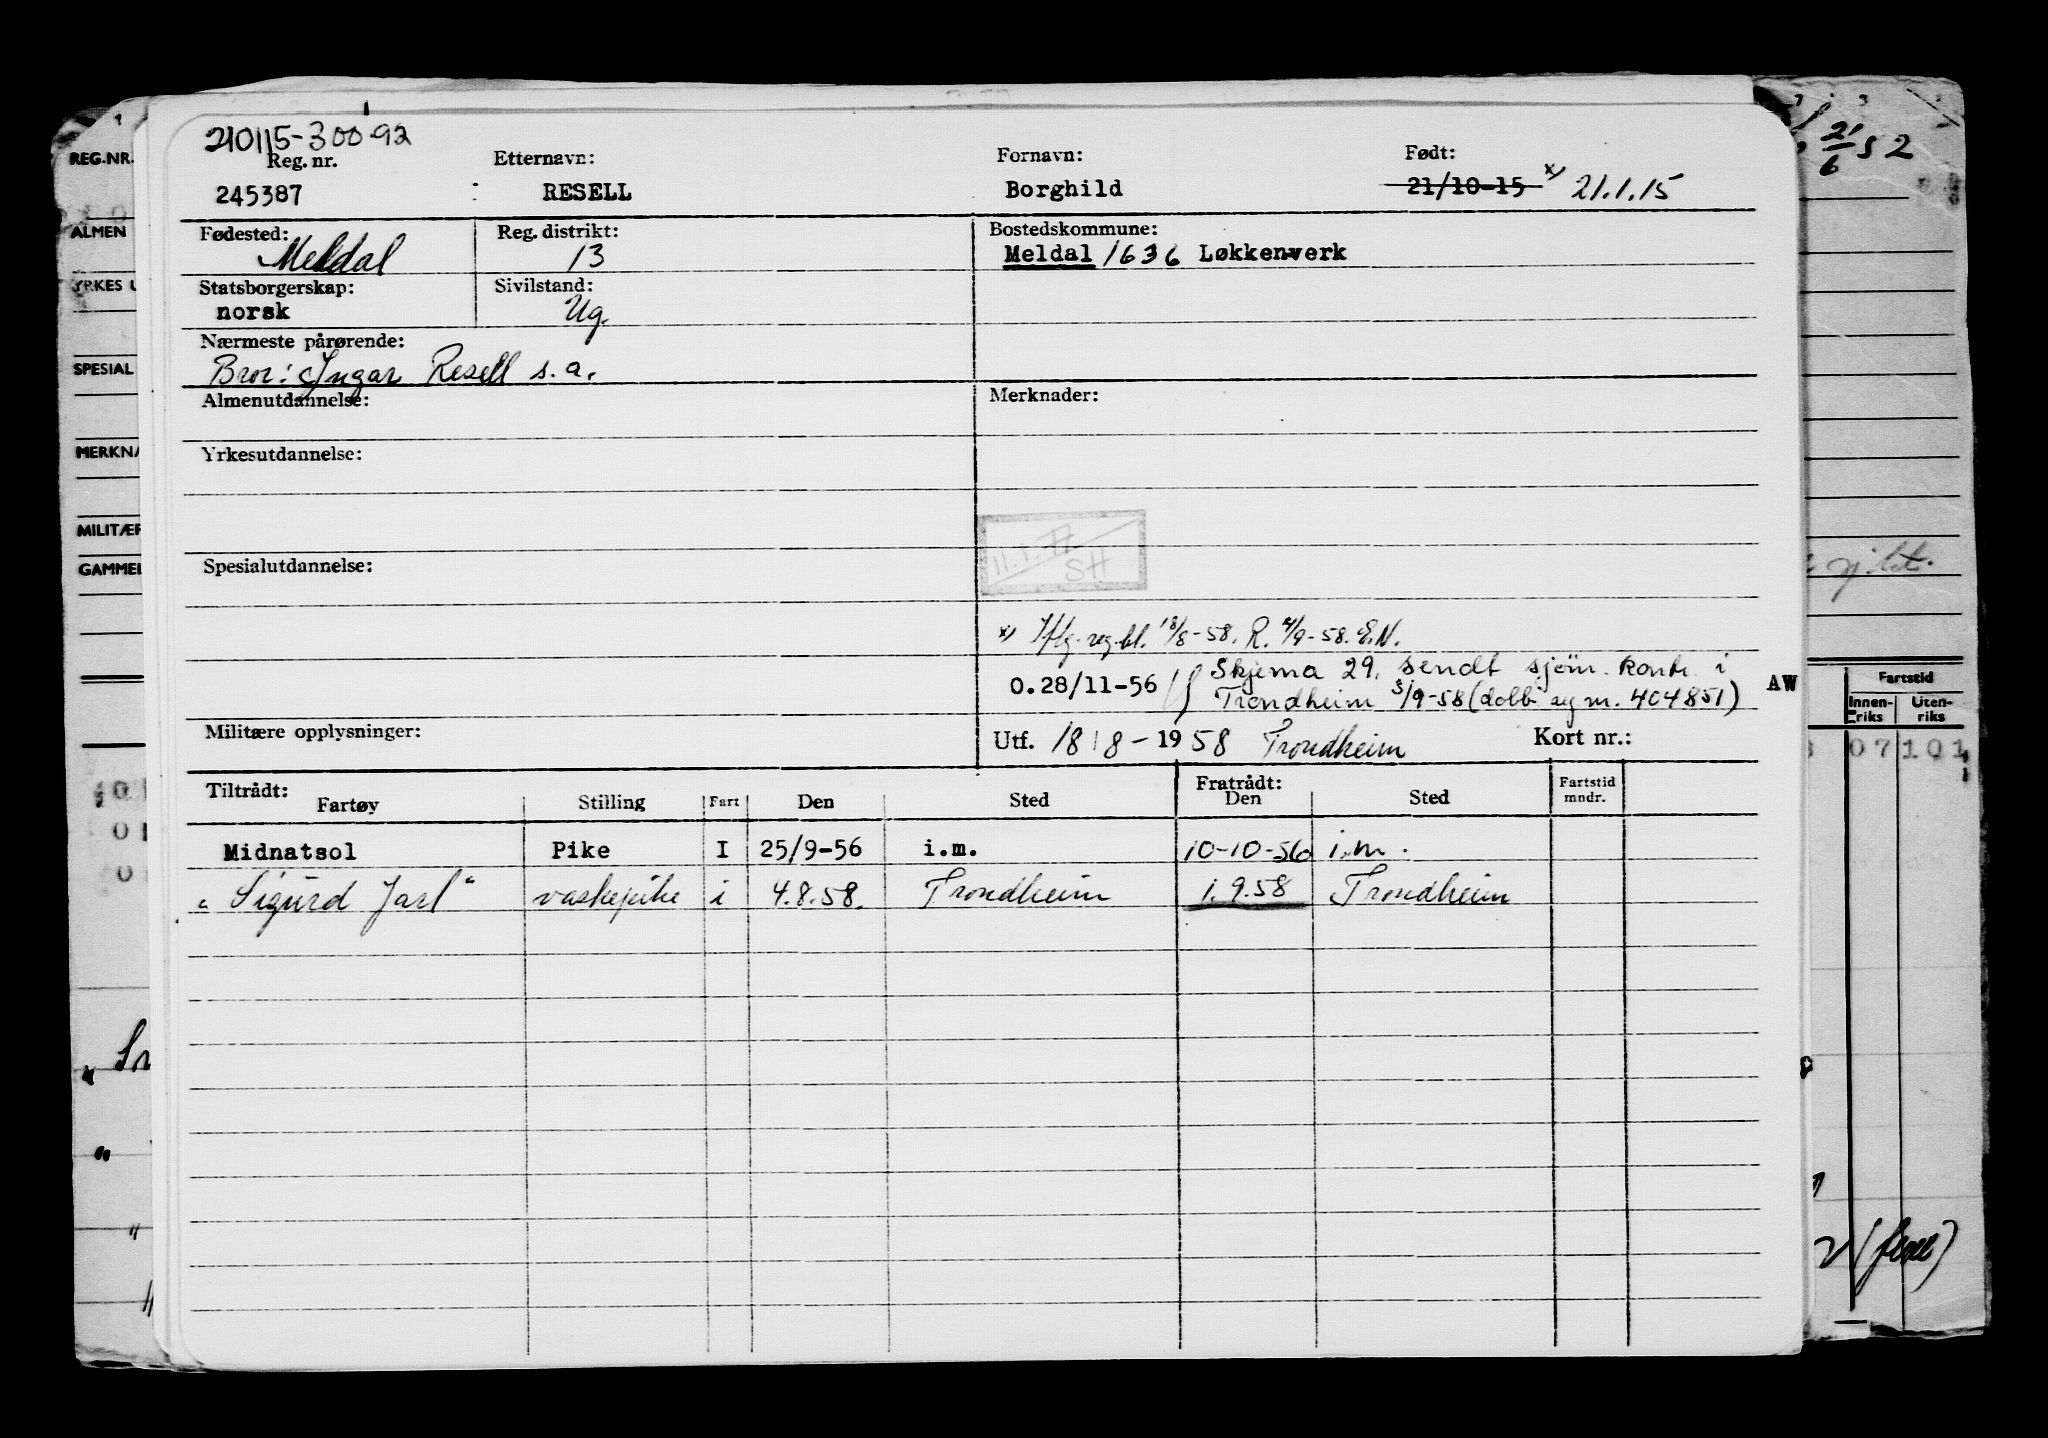 210115-30092
Reg. nr. Etternavn: Fornavn: Født:
245387 RESELL Borghild 21/10-15 x) 21.1.15
Fødested: Reg. distrikt: Bostedskommune:
Meldal 13 Meldal 1636 Løkkenverk
Statsborgerskap: Sivilstand:
norsk Ug.
Nærmeste pårørende:
Bror: Ingar Resell s.a.
Almenutdannelse: Merknader:
Yrkesutdannelse:
11.1.
SH
Spesialutdannelse:
x) Iflg. reg.bl. 18/8-58. R. 4/9-58. E.N.
Skjema 29. sendt sjøm. kontr. i
0.28/11-56 Trondheim 3/9-58 (dobb. reg nr. 404851) AW
Militære opplysninger: Utf. 18/8-1958 Trondheim Kort nr.:
Tiltrådt: Fratrådt:
Fartøy Stilling Fart Den Sted Den Sted Fartstid mndr.
Midnatsol Pike I 25/9-56 i.m. 10-10-56 i.m.
"Sigurd Jarl" vaskepike i 4.8.58. Trondheim 1.9.58 Trondheim
REG.NR.
ALMEN
YRKES U
SPESIAL
MERKNA
MILITÆR
GAMMEL
21/6 52
Fartstid
Innen-riks Uten-riks
07 101